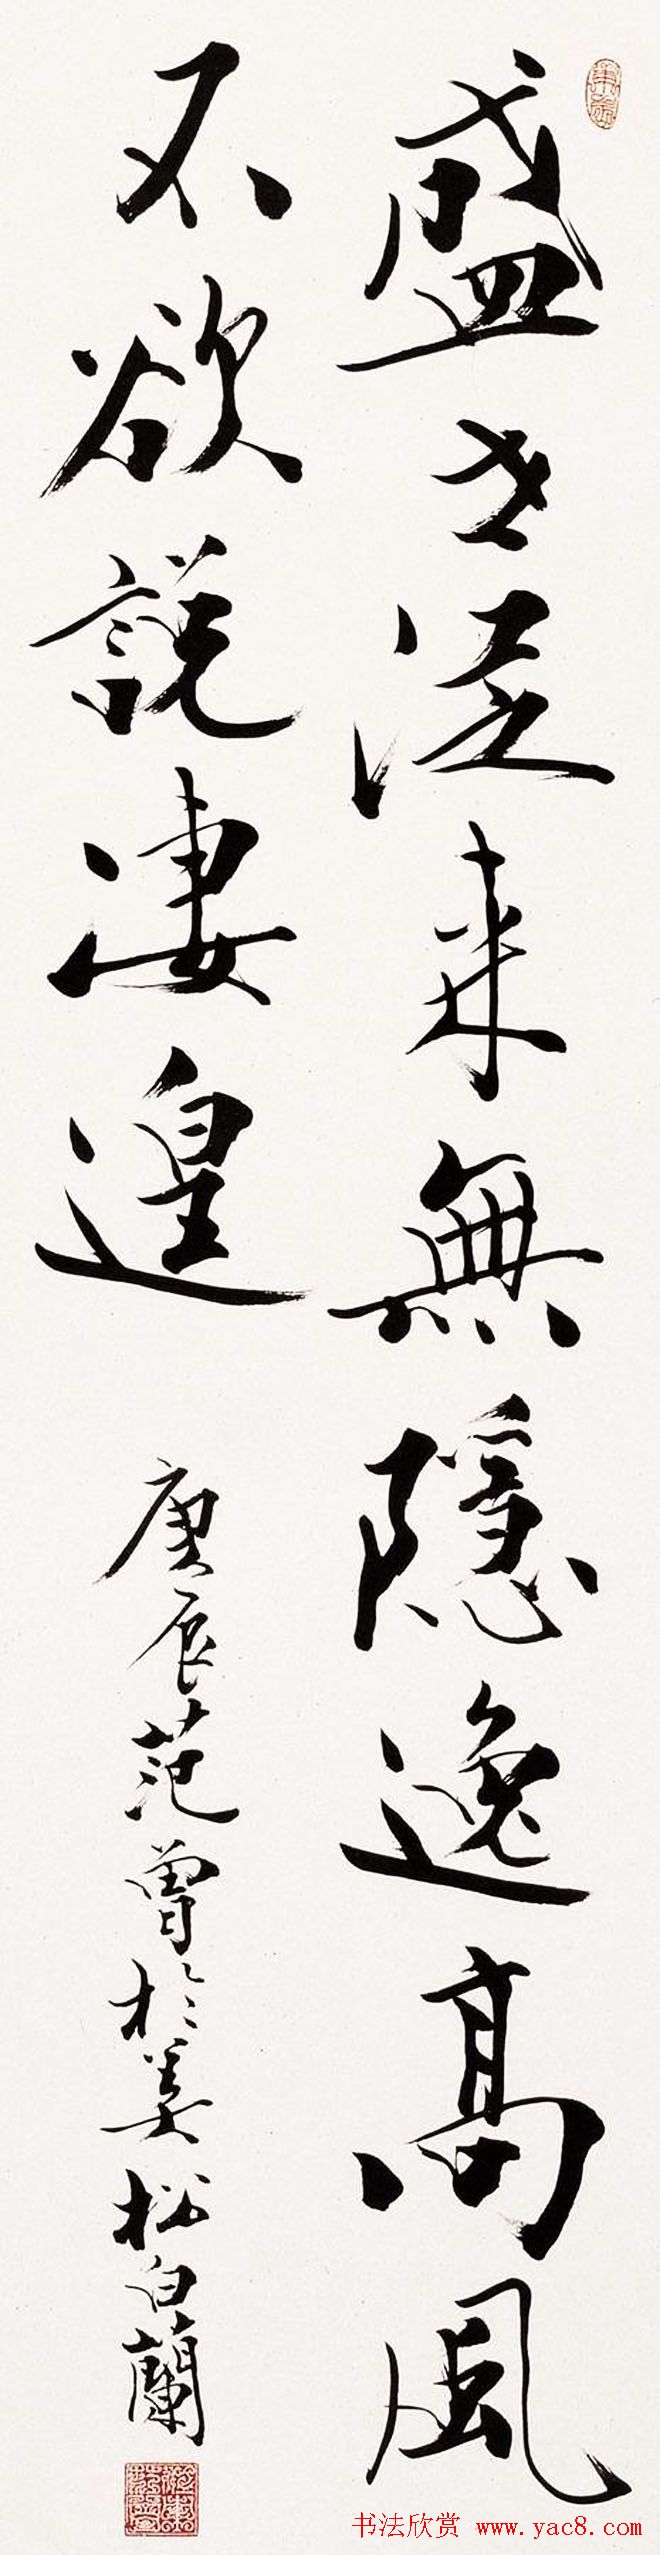 盛世從来無隱逸高風
不欲說凄遑 庚辰范曾於美松白蘭
书法欣赏 www.yac8.com